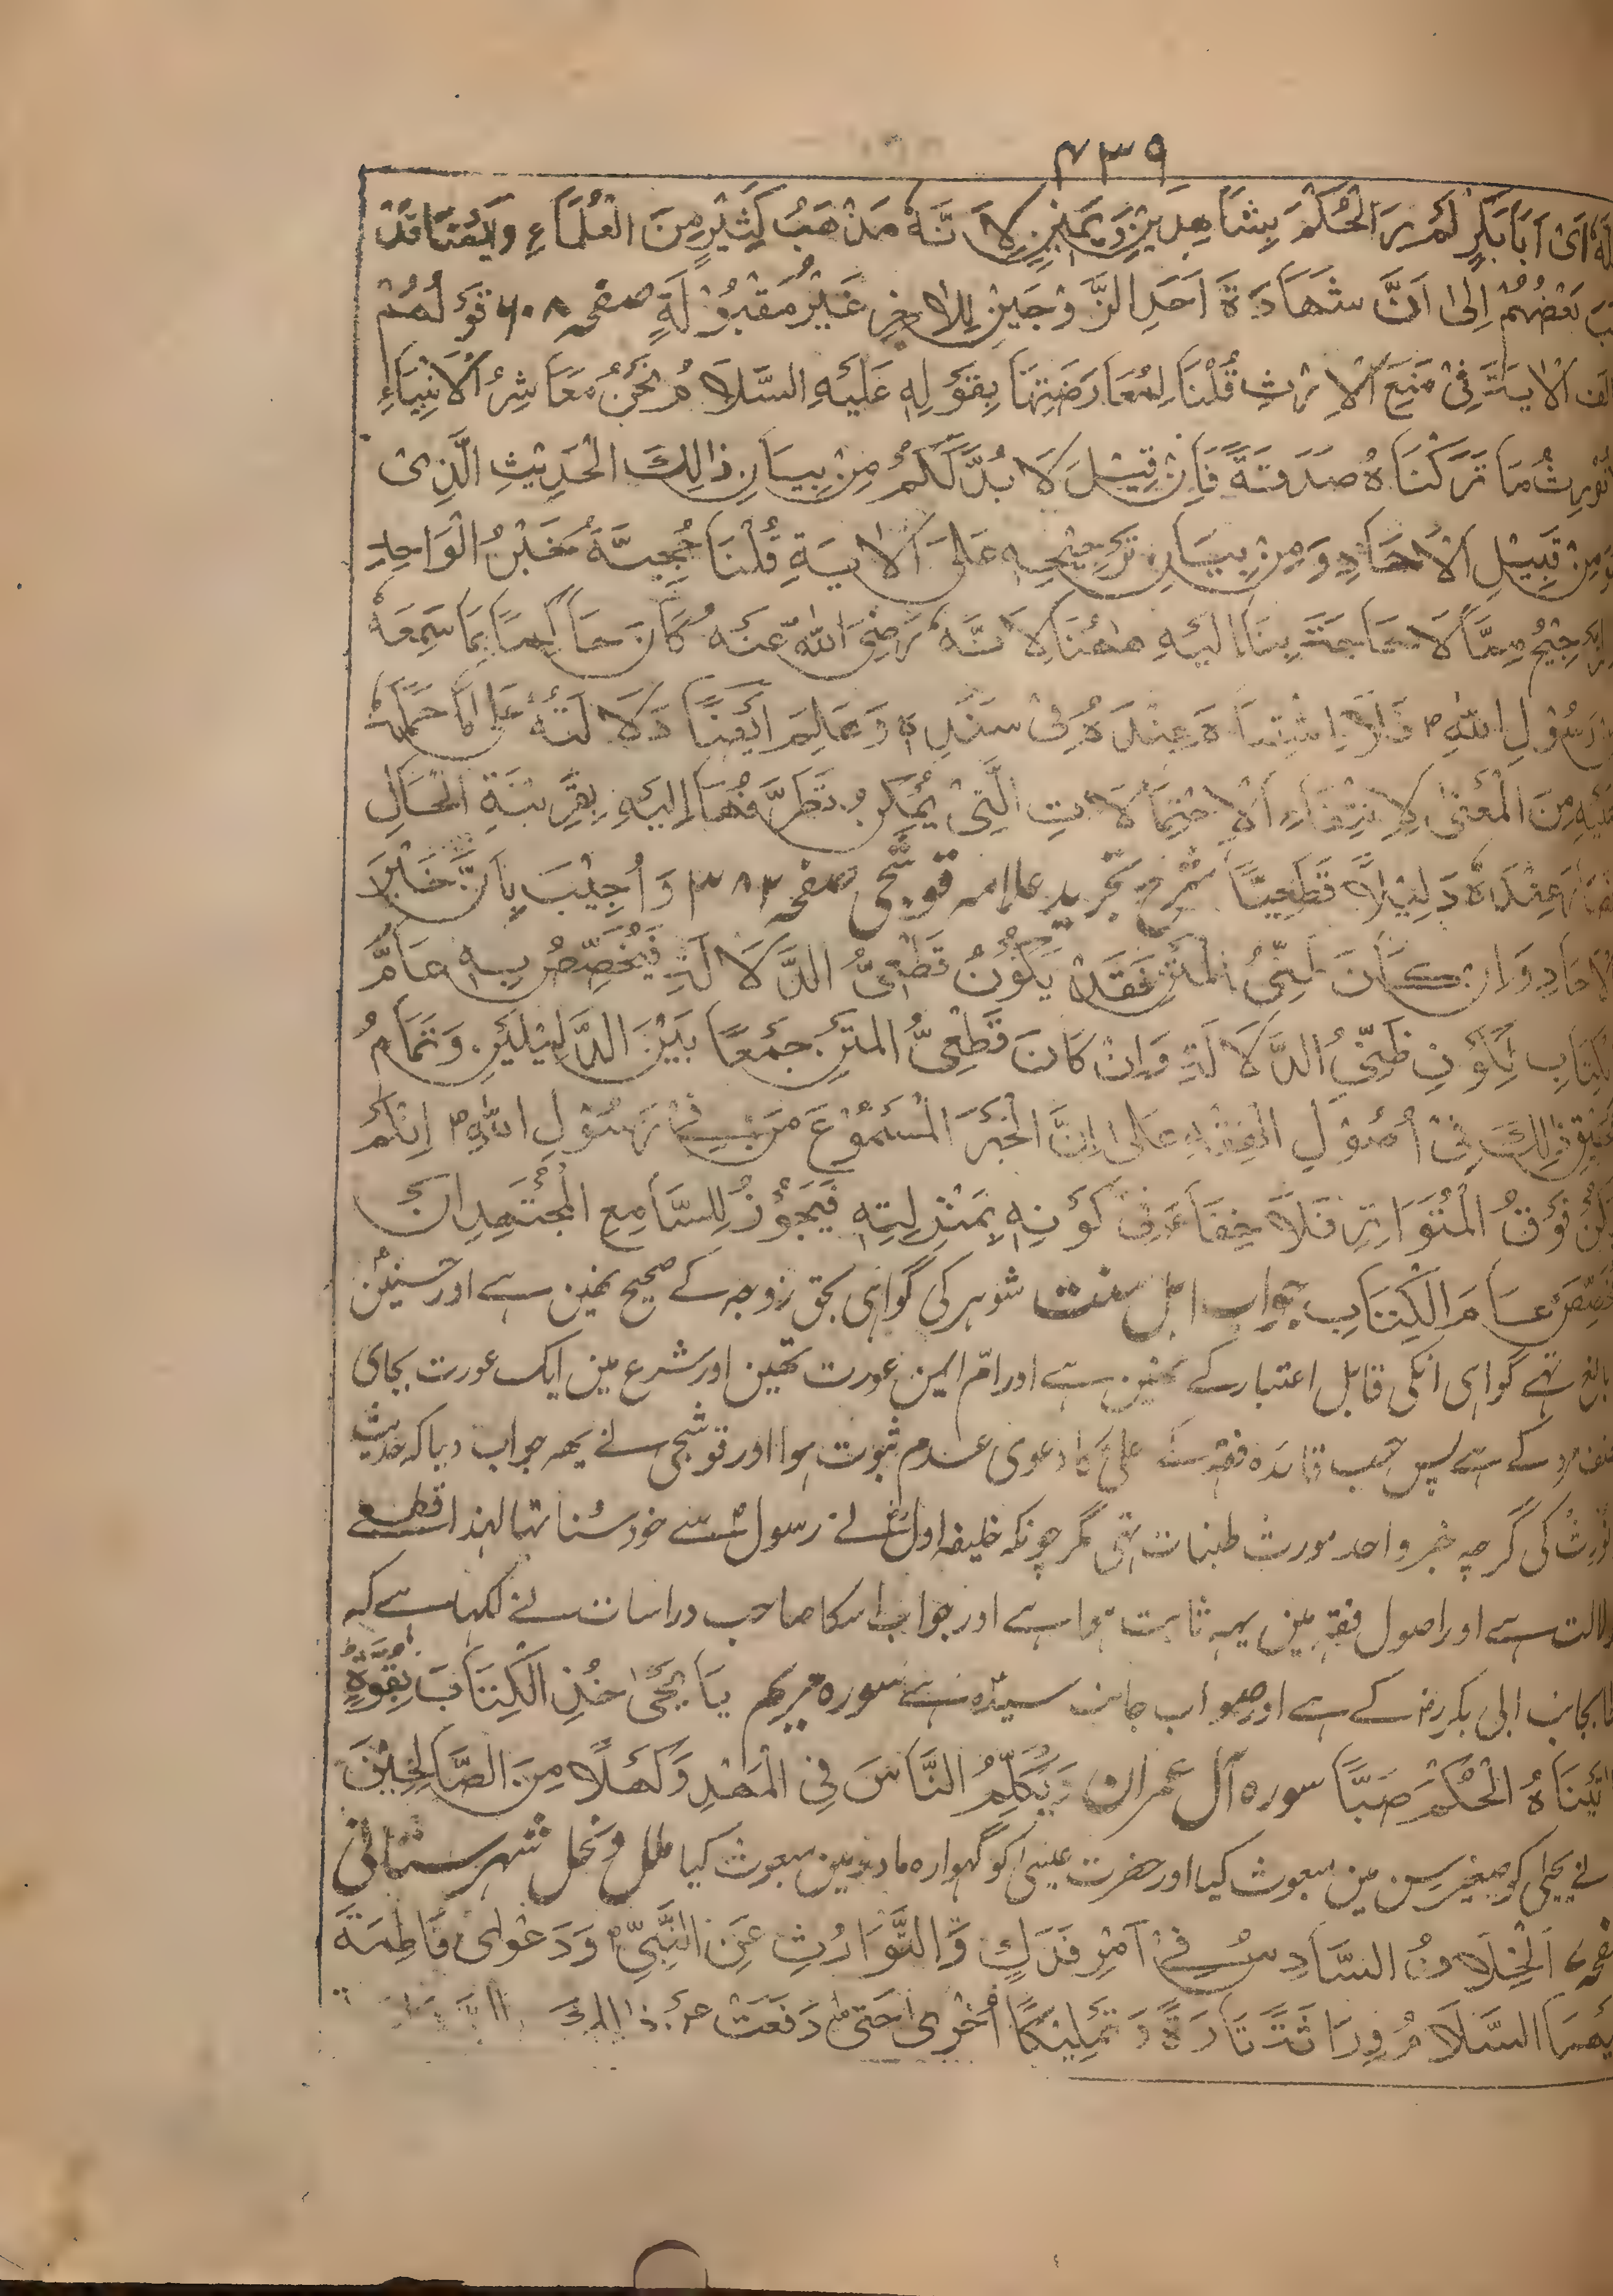 ۴۳۹
اَىْ اَبَا بَكْرٍ لَمْ يَرَ الْحُكْمَ بِشَاهِدٍ وَيَمِيْنٍ لِاَنَّهٗ مَذْهَبُ كَثِيْرٍ مِنَ الْعُلَمَاءِ وَاَيْضًا قَدْ
بَعْضُهُمْ اِلٰى اَنَّ شَهَادَةَ اَحَدِ الزَّوْجَيْنِ لِلْاٰخِرِ غَيْرُ مَقْبُوْلَةٍ صفحہ ۶۰۸ قَوْلُهُمْ
الْاٰيَةَ فِىْ مَنْعِ الْاِرْثِ قُلْنَا لِمُعَارَضَتِهَا بِقَوْلِهٖ عَلَيْهِ السَّلَامُ نَحْنُ مَعَاشِرُ الْاَنْبِيَاءِ
نُوْرِثُ مَا تَرَكْنَاهُ صَدَقَةً فَاِنْ قِيْلَ لَا بُدَّ لَكُمْ مِنْ بِيَانِ ذٰلِكَ الْحَدِيْثِ الَّذِىْ
مِنْ قَبِيْلِ الْاٰحَادِ وَمِنْ بِيَانِ تَرْجِيْحِهٖ عَلَى الْاٰيَةِ قُلْنَا حُجِيَّةُ خَبْرُ الْوَاحِدِ
التَّرْجِيْحُ مِمَّا لَا حَاجَةَ بِنَا اِلَيْهِ هٰهُنَا لِاَنَّهٗ رَضِىَ اللهُ عَنْهُ كَانَ حَاكِمًا بِمَا سَمِعَهٗ
رَسُوْلِ اللهِ ؐ فَلَا اشْتِبَاهَ عِنْدَهُ فِىْ سَنَدِهٖ وَعَلِمَ اَيْضًا دَلَالَتَهُ عَلٰى مَا حَمَلَهٗ
عَلَيْهِ مِنَ الْمَعْنٰى لِانْتِفَاءِ الْاِحْتِمَالَاتِ الَّتِىْ يُمْكِنُ تَطَرُّقُهَا اِلَيْهِ بِقَرِيْنَةِ الْحَالِ
عِنْدَهٗ دَلِيْلًا قَطْعِيًّا شرح تجريد علامہ قوشجى صفحہ ۳۸۳ وَاُجِيْبَ بِاَنَّ خَبْرَ
الْاٰحَادِ وَاِنْ كَانَ ظَنِّىُّ الْمَتْنِ فَقَدْ يَكُوْنُ قَطْعِىُّ الدَّلَالَةِ فَيُخَصِّصُ بِهٖ عَامُّ
الْكِتَابِ لِكَوْنِ ظَنِّىُّ الدَّلَالَةِ وَاِنْ كَانَ قَطْعِىُّ الْمَتْنِ جَمْعًا بَيْنَ الدَّلِيْلَيْنِ وَتَمَامُ
ذٰلِكَ فِىْ اُصُوْلِ الْفِقْهِ عَلٰى اِنَّ الْخَبَرَ الْمَسْمُوْعَ مَنْ فِىْ رَسُوْلِ اللهِ ؐ اِنْ لَمْ
يَكُنْ فَوْقُ الْمُتَوَاتِرِ فَلَا خِفَاءَ فِىْ كَوْنِهٖ بِمَنْزِلِتِهٖ فَيَجُوْزُ لِلسَّامِعِ الْمُجْتَهِدِ اَنْ
يُخَصِّصَ عَامَ الْكِتَابِ جواب اہل سنت شوہر كى گواہى بحق زوجہ كے صحيح نہين ہے اور حسنينؑ
بالغ تہے گواہى انكى قابل اعتبار كے نہين ہے اور امّ ايمن عورت تہين اور شرع مين ايك عورت بجاى
نصف مرد كے ہے پس حسب قاعدہ فقہ كے علىؑ كا دعوى عدم ثبوت ہوا اور قوشجى نے يہہ جواب دياكہ حديث
نورث كى گرچہ خبر واحد مورث ظنيات تہى مگر چونكہ خليفہ اولؓ نے رسولؐ سے خود سنا تہا لہذا قطعے
دلالت ہے اور اصول فقہ مين يہہ ثابت ہوا ہے اور جواب اسكا صاحب دراسات نے لكہا ہے كہ
بجانب ابى بكررض كے ہے اور صواب جانب سيدہ ہے سورہ مريم يَا يَحْيٰى خُذِ الْكِتَابَ بِقُوَّةٍ
اٰتَيْنَاهُ الْحُكْمَ صَبِيًّا سورہ آل عمران وَيُكَلِّمُ النَّاسَ فِى الْمَهْدِ وَكَهْلًا مِنَ الصَّالِحِيْنَ
نے يحيٰى كو صغير سن مين مبعوث كيا اور حضرت عيسٰى كو گہوارہ مادر مين مبعوث كيا ملل و نحل شہرستانى
اَلْخِلَافُ السَّادِسُ فِىْ اَمْرِ فَدَكٍ وَّالتَّوَارُثِ عَنِ النَّبِىِّ ؐ وَدَعْوٰى فَاطِمَةَ
السَّلَامُ وِرَاثَةً تَارَةً وَتَمْلِيْكًا اُخْرٰى حَتّٰى دَفَعَتْ عَنْ ذٰلِكَ